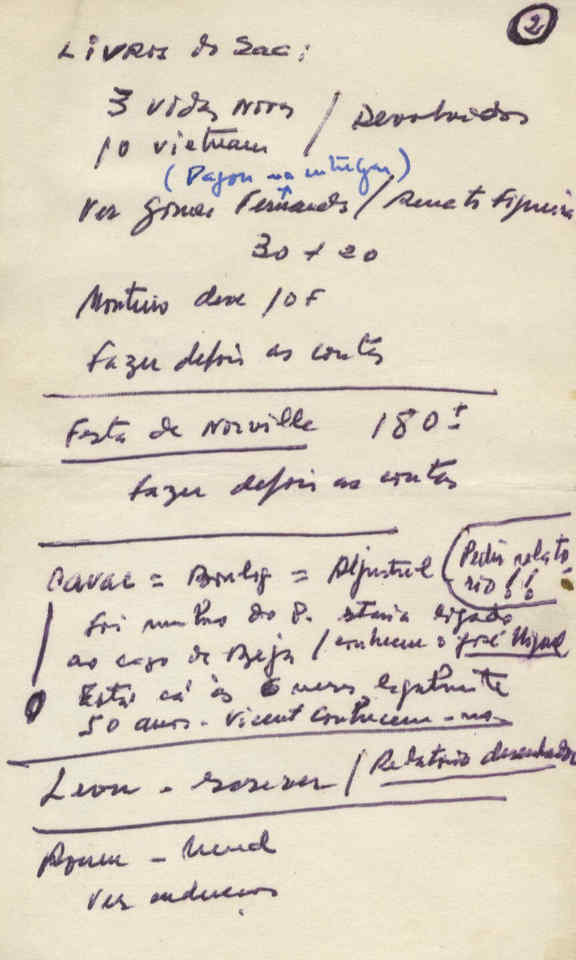 2
Livros do Sac:
3 vidas Novas / Devolvidos
10 vietnam
(Pagou na entrega)
Ver Gomes Fernando / Renato
30 + 20
Monteiro deve 10 F
fazer depois as contas
Festa de Norville 180 ±
fazer depois as contas
= = Aljustrel (Pedir relató-
rio!!
foi do P. estaria ligado
ao caso de Beja / conhecem o José Miguel
Está cá às 6 meses legalmente
50 anos - Vicent conhecem-no
Leon - escrever / Relatório
-
Ver endereços